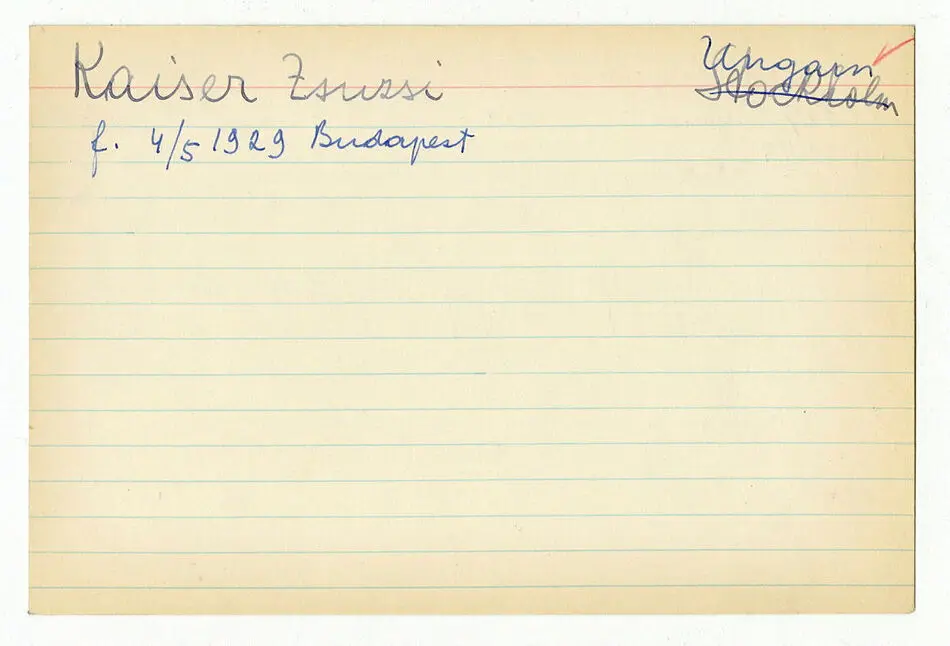 Kaiser Zsuzsi
Ungarn
Stockholm
f. 4/5 1929 Budapest